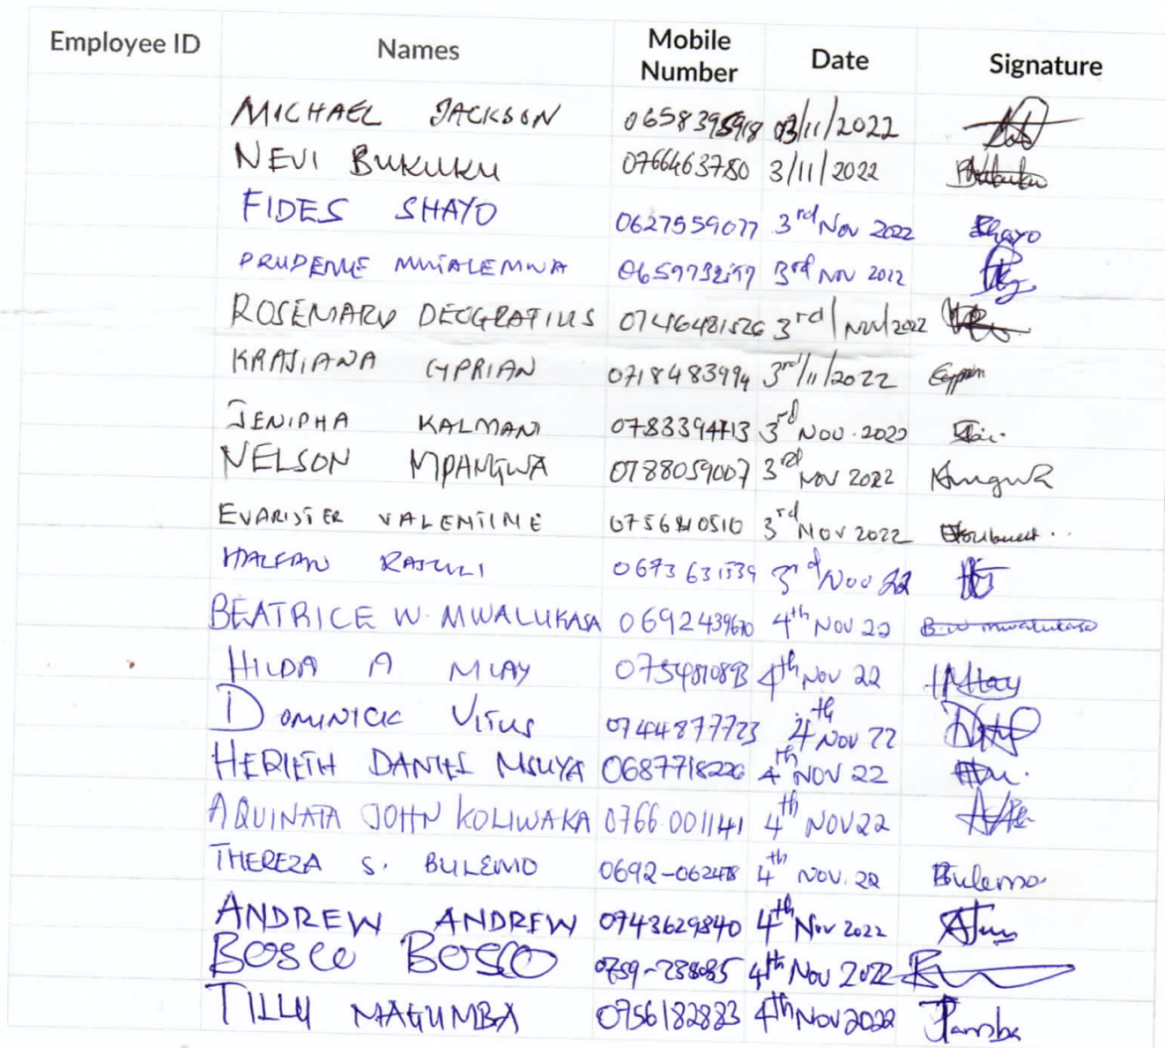 Employee ID Names Mobile Number Date Signature
MICHAEL JACKSON 0658395918 03/11/2022
NEVI BUKUKU 0766463780 3/11/2022
FIDES SHAYO 0627559077 3rd Nov 2022 Shayo
3rd Nov 2022
ROSEMARY DEOGRATIUS 3rd/Nov/2022
CYPRIAN 0718483994 3rd/11/2022
JENIPHA KALMANI 0783394713 3rd Nov. 2022
NELSON MPANGWA 0788059007 3rd Nov 2022
EVARISTER VALENTINE 3rd Nov 2022
HALFAN RAJULI 3rd Nov 22
BEATRICE W. MWALUKASA 4th NOV 22 B.W mwalukasa
HILDA A MLAY 4th Nov 22 Mlay
DOMINICK VITUS 0744877723 4th Nov 22
HERIETH DANIEL MSUYA 0687718226 4th NOV 22
AQUINATA JOHN KOLIWAKA 0766 001141 4th NOV 22
THEREZA S. BULEMO 0692-062478 4th NOV. 22 Bulemo
ANDREW ANDREW 0743629840 4th Nov 2022
BOSCO BOSCO 4th Nov 2022
TILLY MAGUMBA 0756182883 4th Nov 2022